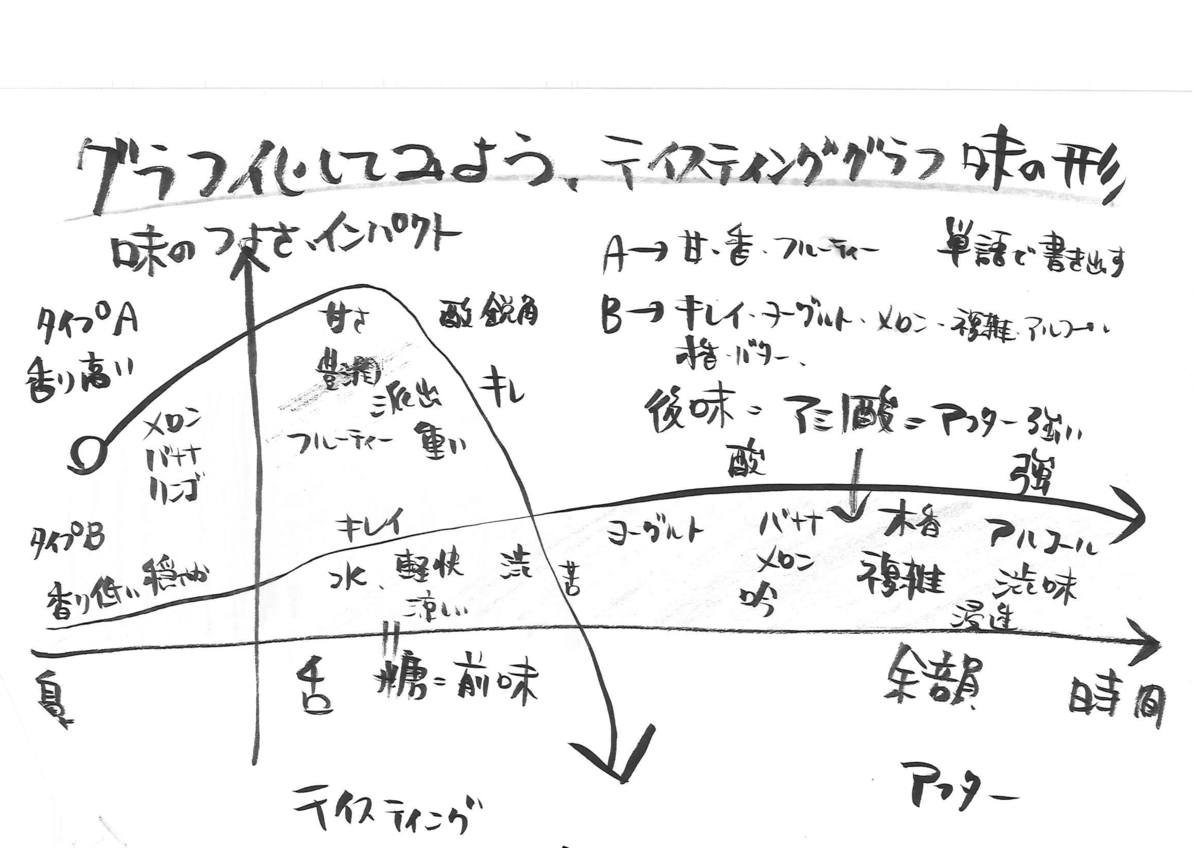 グラフ化してみよう、テイスティンググラフ 味の形
味のつよさ、インパクト
A→甘・香・フルーティー 単語で書き出す
B→キレイ・ヨーグルト・メロン・複雑・アルコール
木香・バター、
タイプA
香り高い
甘さ
酸 鋭角
豊潤
キレ
派出
フルーティー 重い
メロン
バナナ
リンゴ
後味=アミノ酸=アフター強い
酸
強
タイプB
香り低い 穏やか
キレイ
水、軽快
涼い
渋
苦
ヨーグルト
バナナ
メロン
吟
木香
複雑
アルコール
渋味
浸透
鼻
舌
糖=前味
余韻
時間
テイスティング
アフター